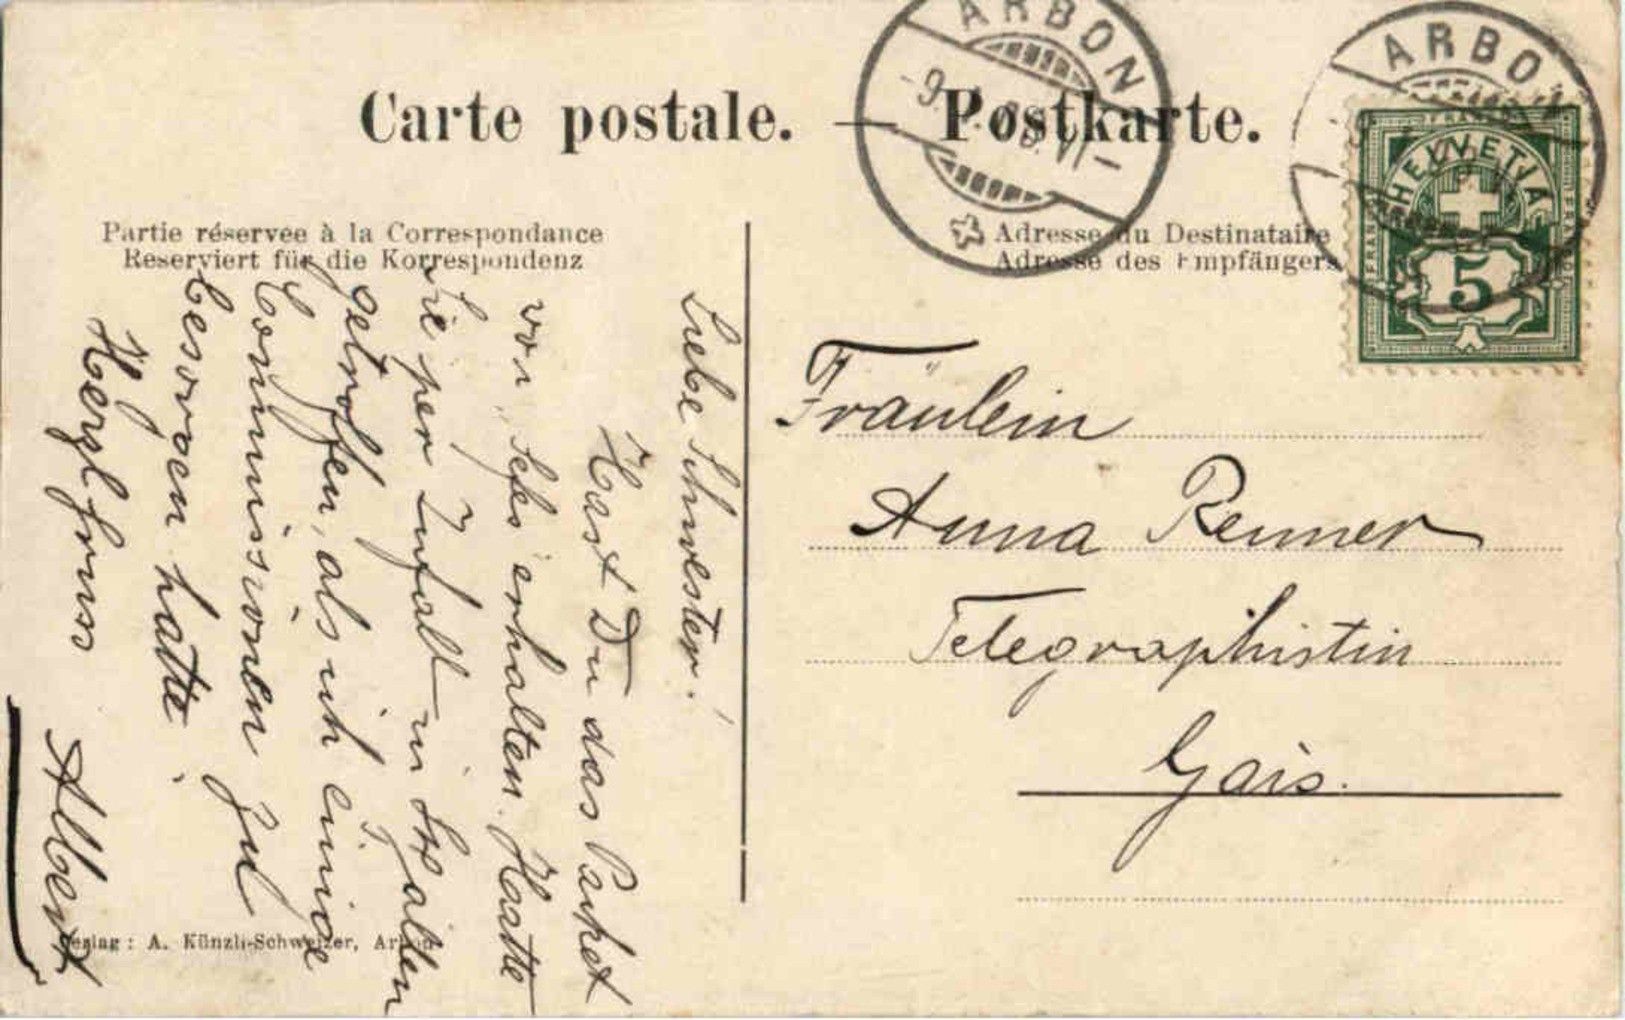 Carte postale. Postkarte.
ARBON
ARBON
HELVETIA
FRANCO
5
Partie réservée à la Correspondance
Reserviert für die Korrespondenz
Adresse du Destinataire
Adresse des Empfängers
Liebe Schwester!
Hast Du das Packet
von erhalten. Hatte
Sie per Zufall in St. Gallen
getroffen, als ich einige
Commissionen zu
besorgen hatte.
Herzl. Gruss
Albert
Fräulein
Anna Renner
Telegraphistin
Gais.
Verlag: A. Künzli-Schweizer, Arbon.